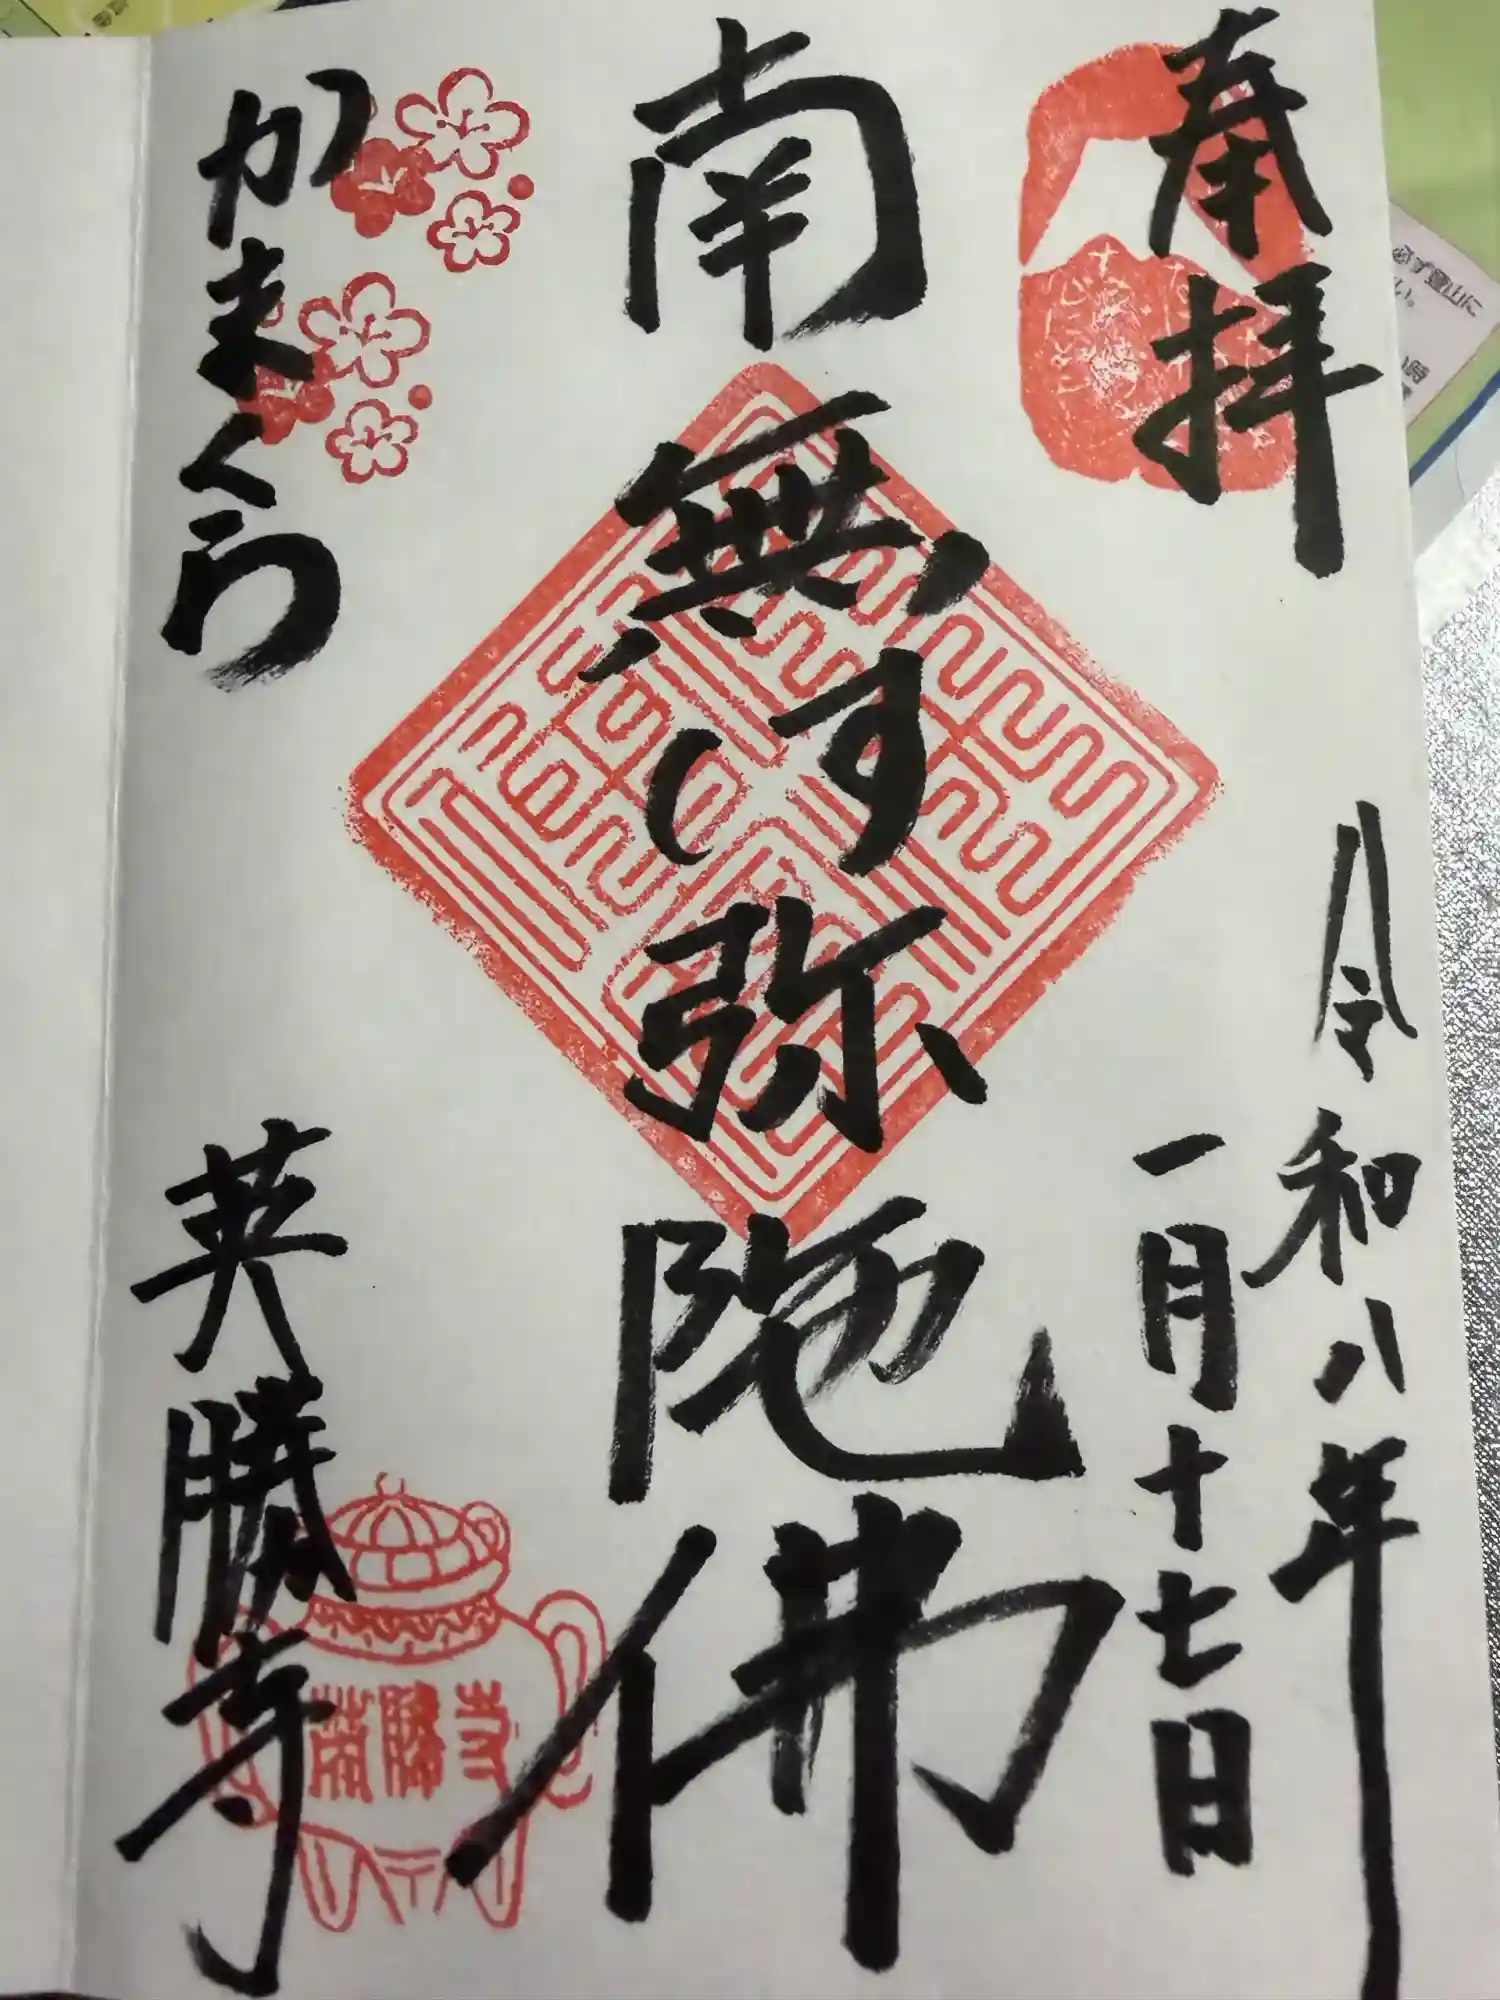 奉拝
令和八年
一月十七日
南無阿弥陀佛
かまくら
英勝寺
必ず登山に
い。